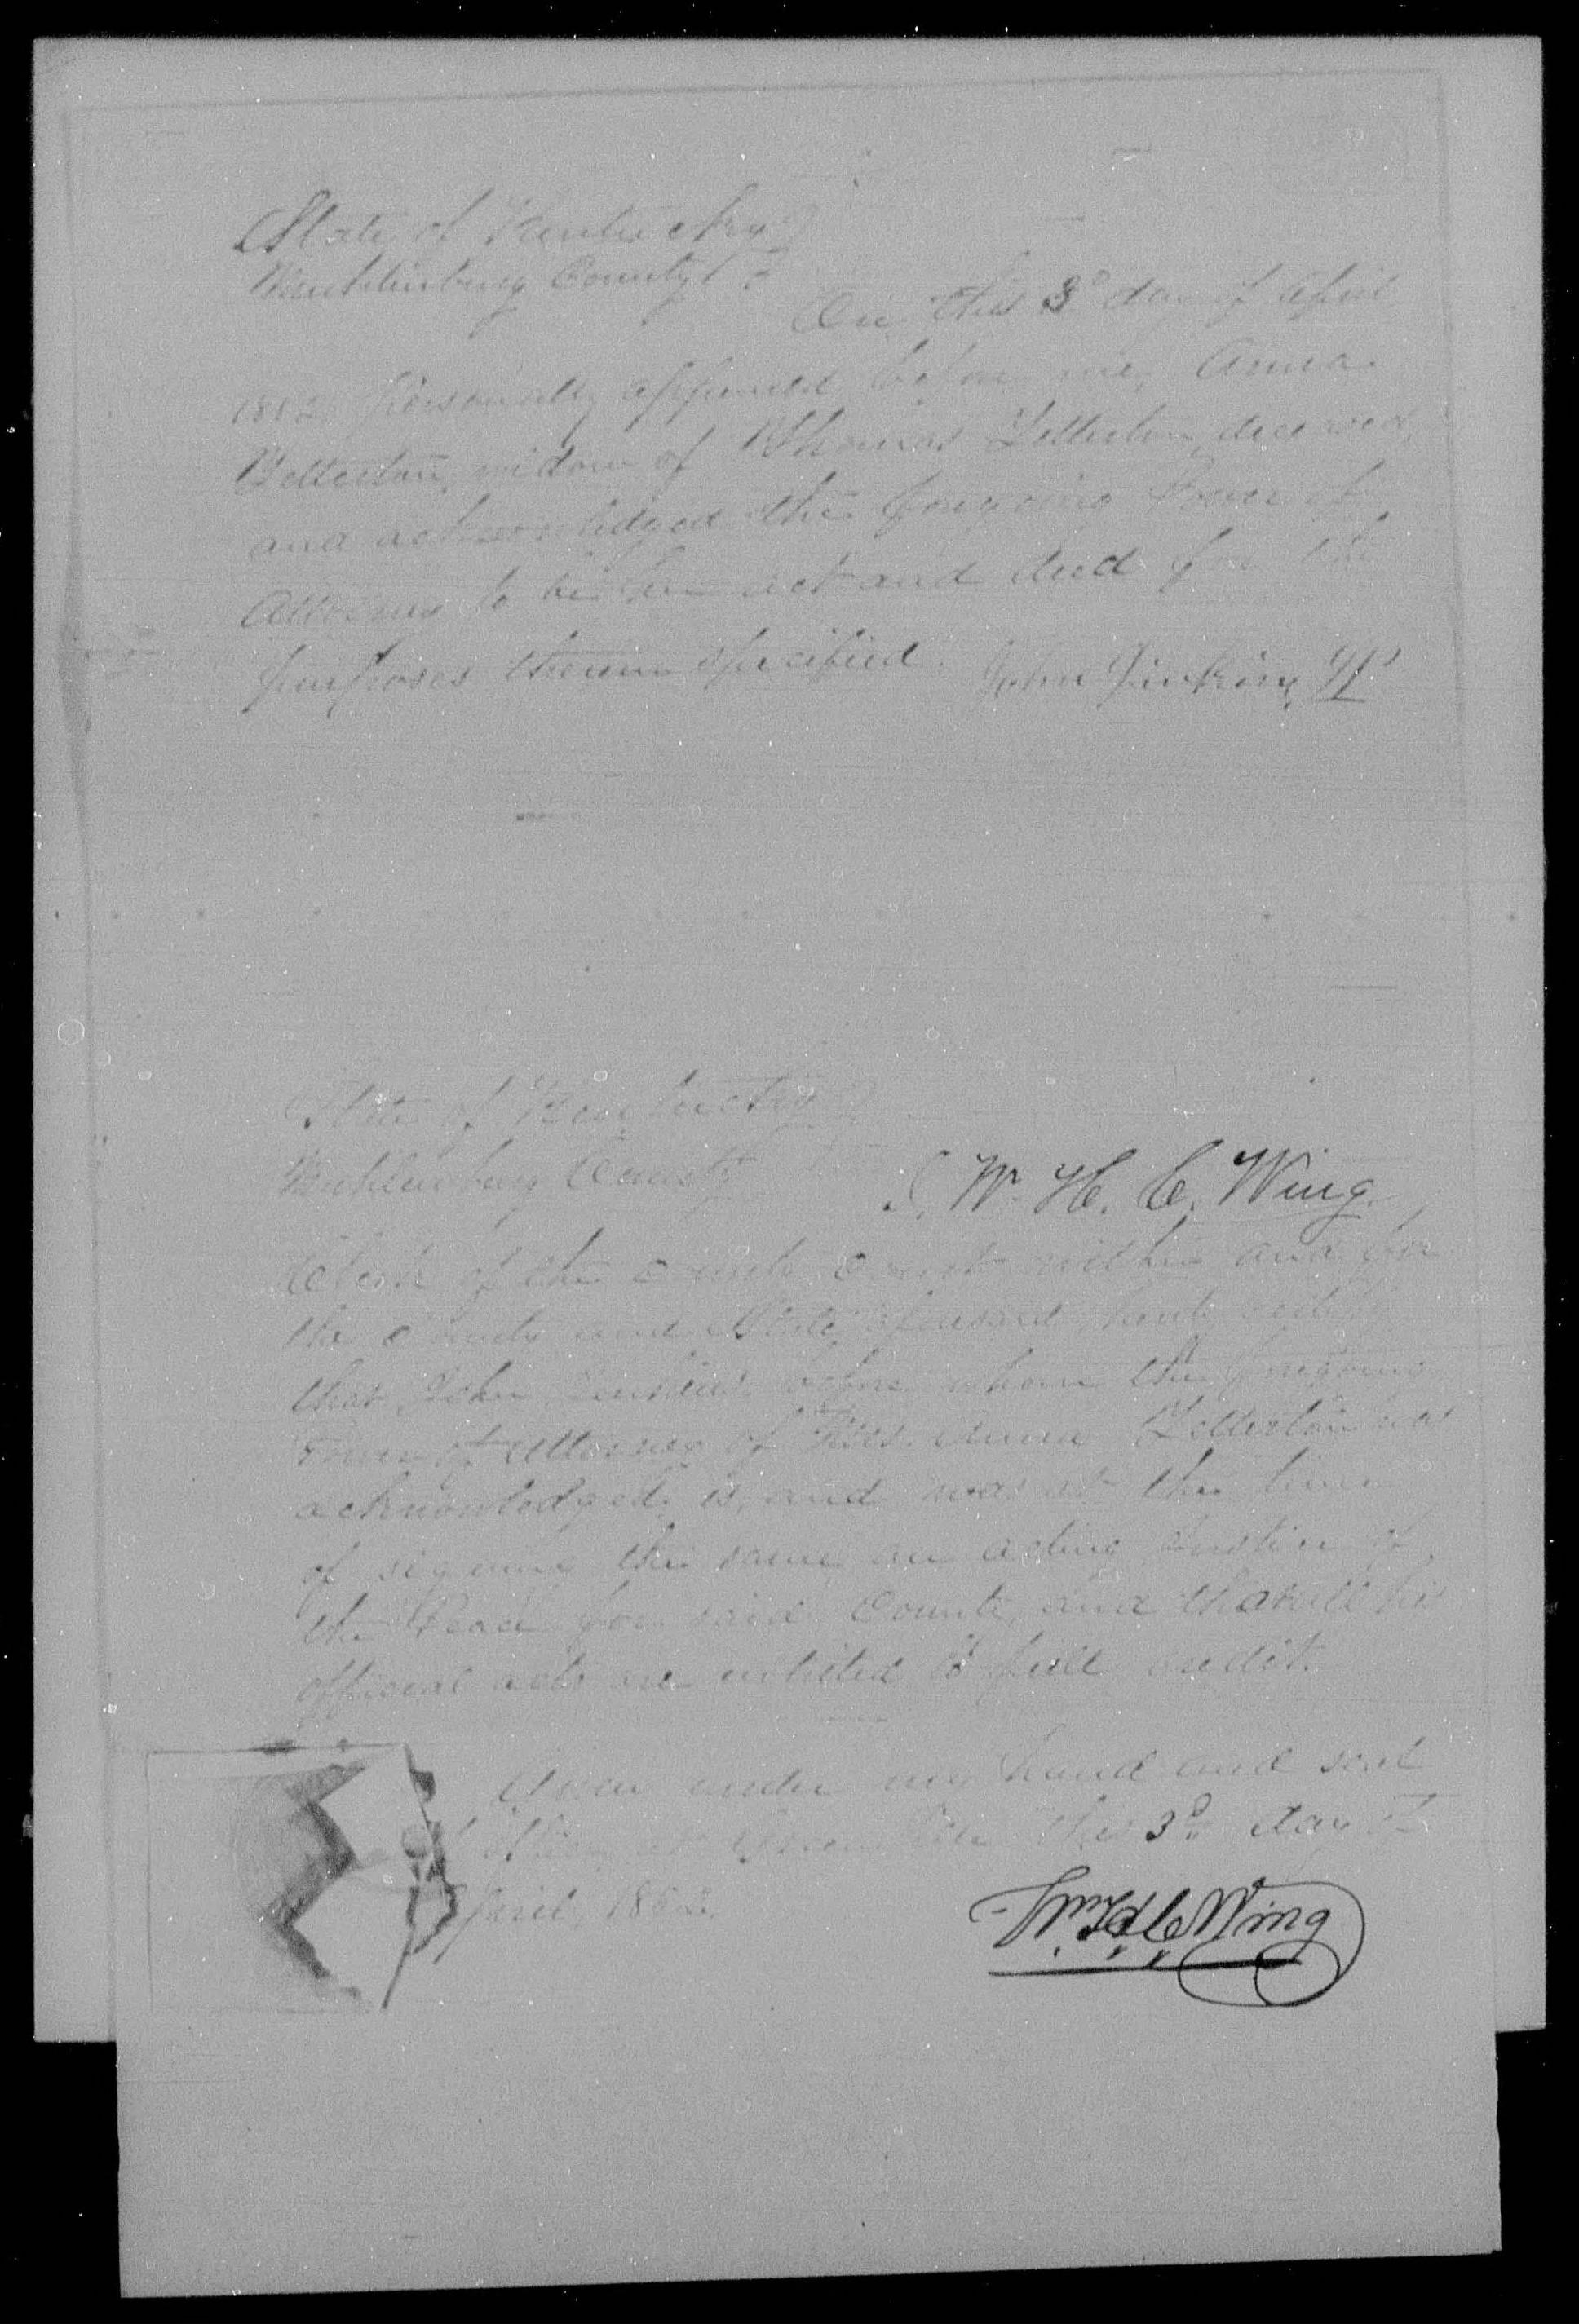 State of Kentucky
Muhlenburg County
On this 3d day of April
1852 Personally appeared before me, Anna
Letterton, widow of Thomas Letterton, deceased,
and acknowledged the foregoing Power of
Attorney to be her act and deed for the
purposes therein specified. John Jinkins JP
State of Kentucky
Muhlenburg County
I, Wm. H. C. Wing,
Clerk of the County Court within and for
the County and State aforesaid, hereby certify
that John Jenkins before whom the foregoing
Power of Attorney of Mrs. Anna Letterton was
acknowledged, is, and was at the time
of signing the same an acting Justice of
the Peace for said County, and that all his
official acts are entitled to full credit.
Given under my hand and seal
of office at Greenville this 3d day of
April 1852.
Wm. H. C. Wing